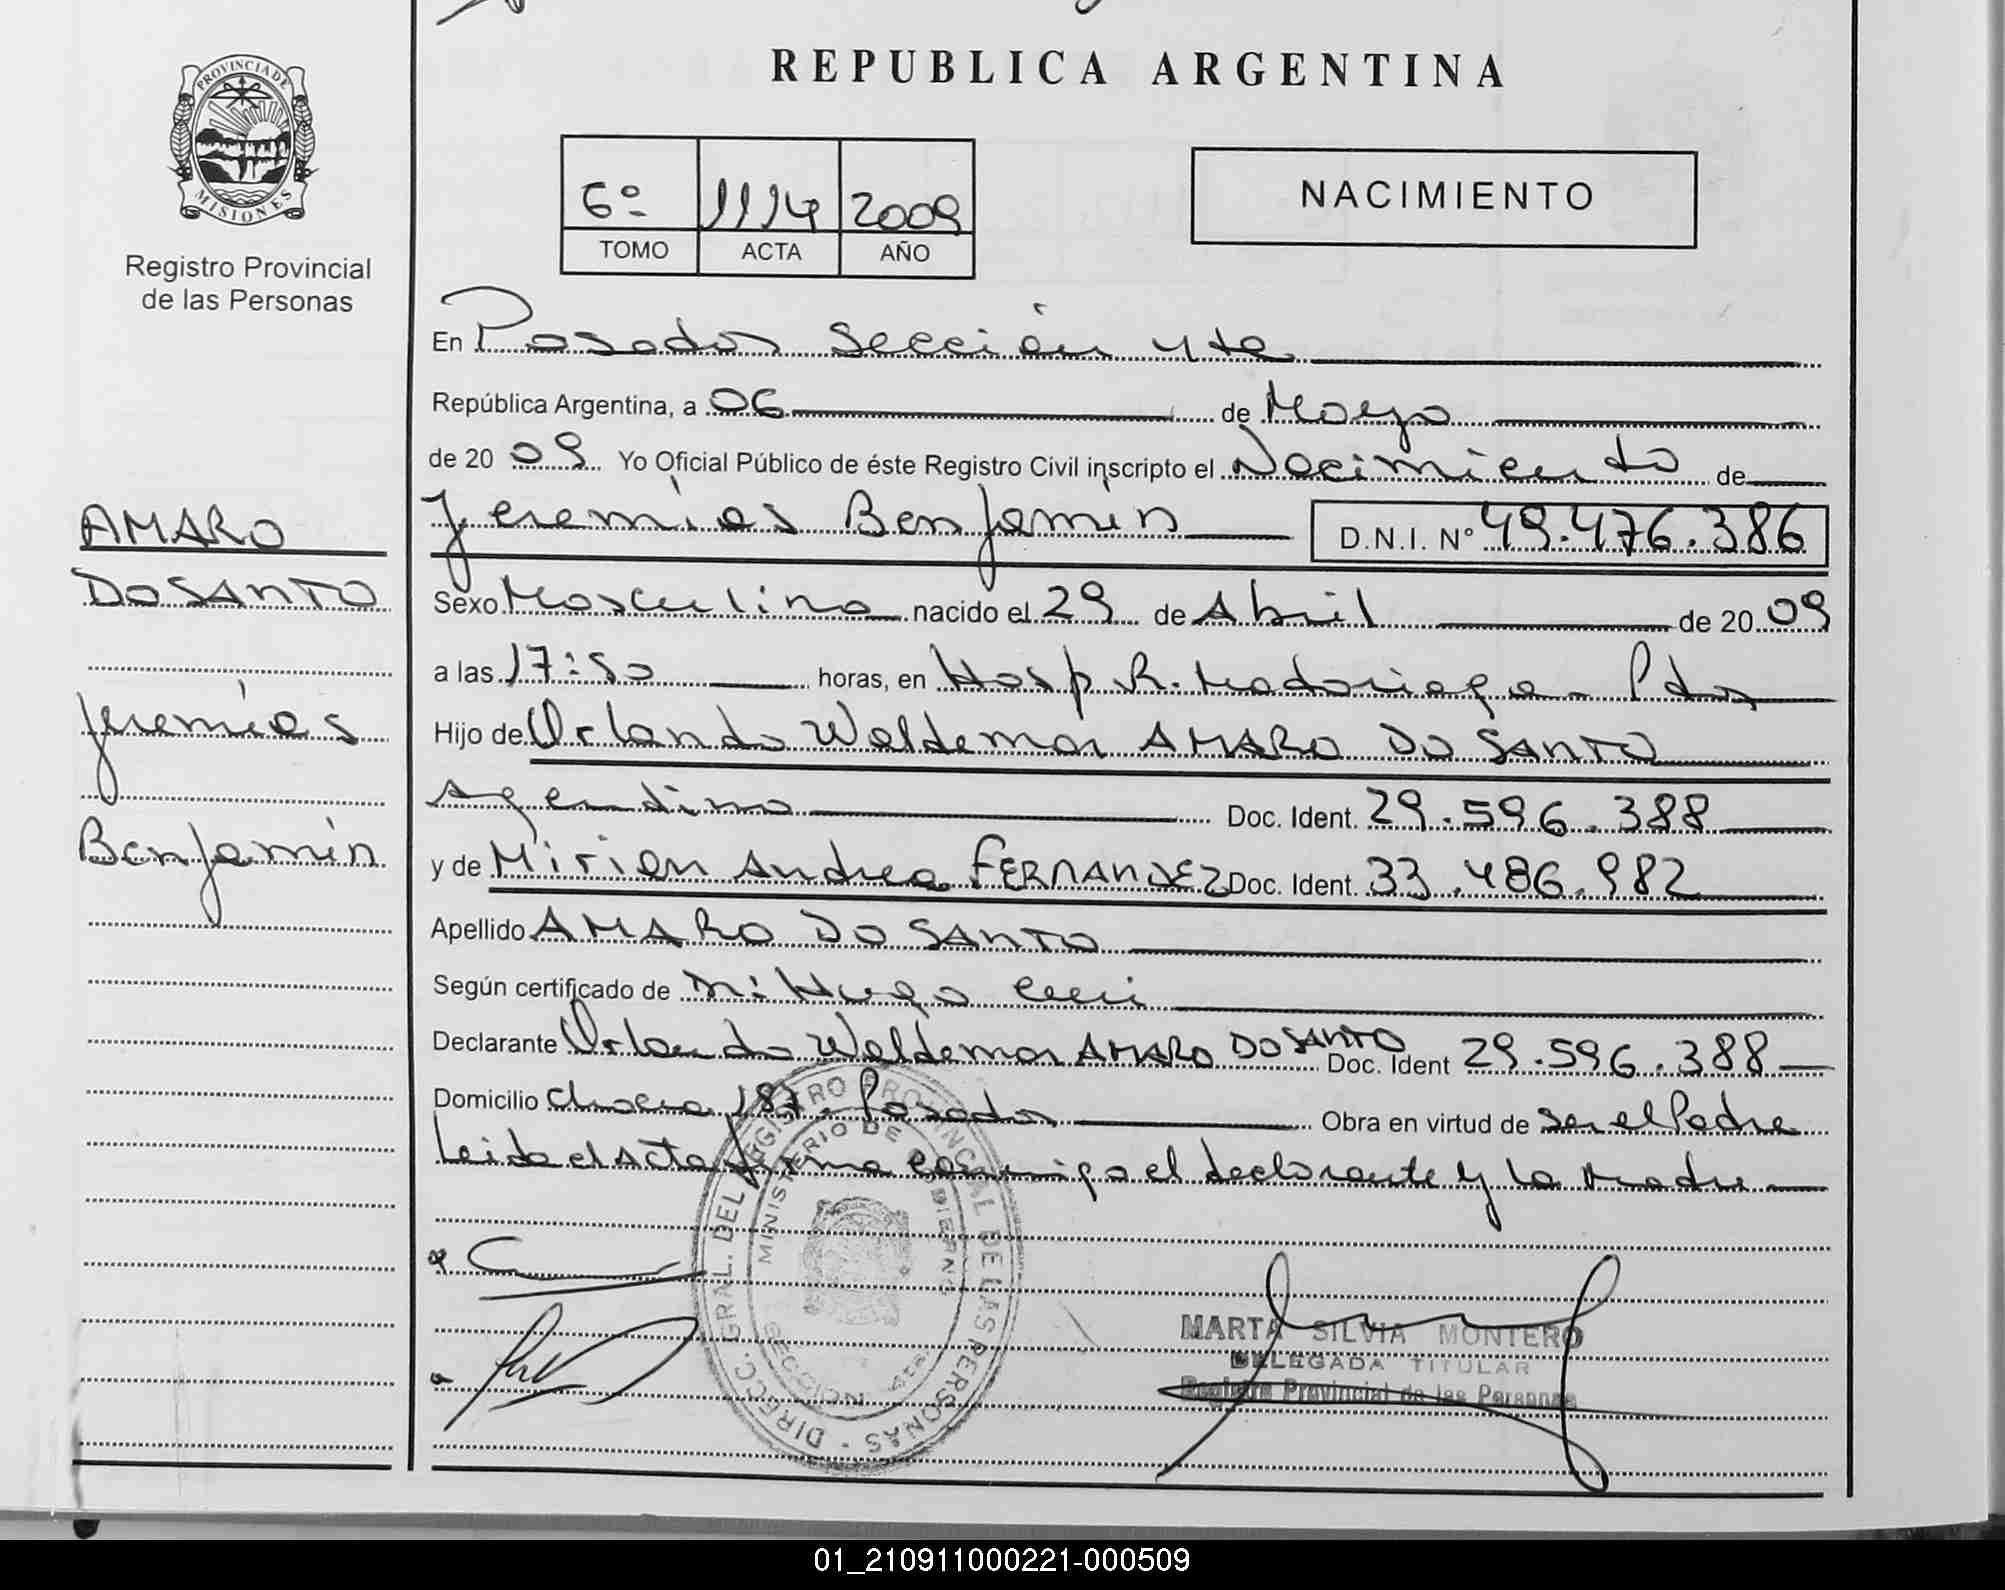 REPUBLICA ARGENTINA
PROVINCIA DE
MISIONES
Registro Provincial
de las Personas
6º 1114 2009
TOMO ACTA AÑO
NACIMIENTO
En Posadas Sección 4ta
República Argentina, a 06 de Mayo
de 2009 Yo Oficial Público de éste Registro Civil inscripto el Nacimiento de
Jeremías Benjamín D.N.I. Nº 49.476.386
Sexo Masculino nacido el 29 de Abril de 2009
a las 17:50 horas, en Hosp R. Madariaga - Pdas
Hijo de Orlando Waldemar AMARO DO SANTO
Argentino Doc. Ident. 29.596.388
y de Mirian Andrea FERNANDEZ Doc. Ident. 33.486.982
Apellido AMARO DO SANTO
Según certificado de Hugo
Declarante Orlando Waldemar AMARO DO SANTO Doc. Ident 29.596.388
Domicilio chacra 187. Posadas Obra en virtud de ser el Padre
Leida el Acta firma conmigo el declarante y la Madre
AMARO
DO SANTO
Jeremías
Benjamín
DIRECC. GRAL. DEL REGISTRO PROVINCIAL DE LAS PERSONAS
MINISTERIO DE GOBIERNO
MARTA SILVIA MONTERO
DELEGADA TITULAR
Registro Provincial de las Personas
01_210911000221-000509